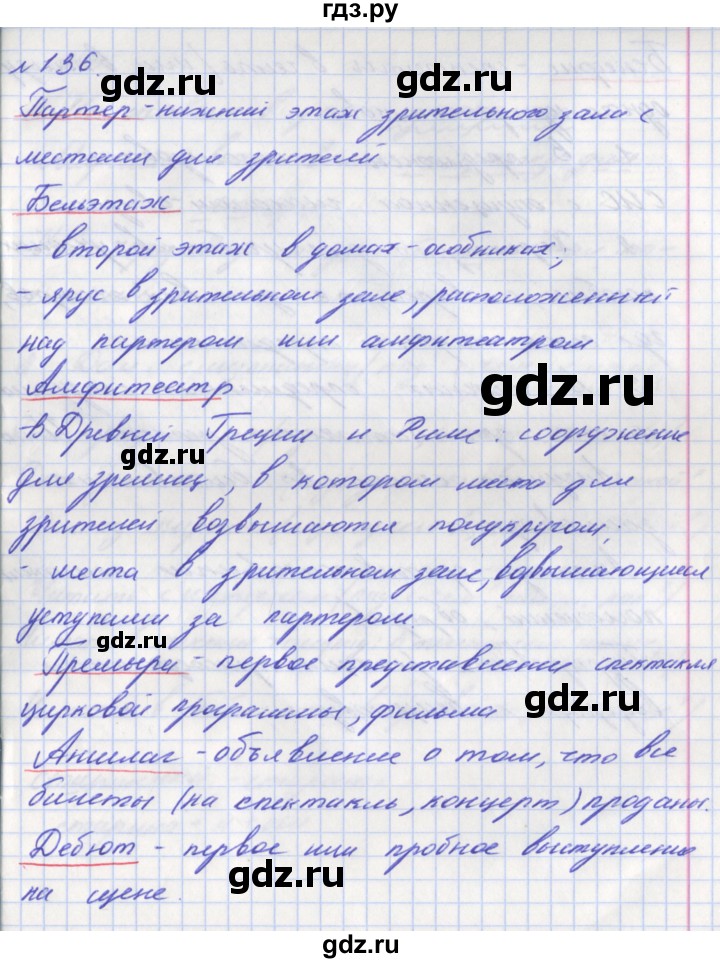 гдз.ру
№136.
Партер - нижний этаж зрительного зала с
местами для зрителей
Бельэтаж
- второй этаж в домах-особняках;
- ярус в зрительном зале, расположенный
над партером или амфитеатром
Амфитеатр
- В Древней Греции и Риме: сооружение
для зрелищ, в котором места для
зрителей возвышаются полукругом;
- места в зрительном зале, возвышающиеся
уступами за партером
Премьера - первое представление спектакля
цирковой программы, фильма
Аншлаг - объявление о том, что все
билеты (на спектакль, концерт) проданы.
Дебют - первое или пробное выступление
на сцене.
gdz.ru
gdz.ru
gdz.ru
gdz.ru
gdz.ru
gdz.ru
gdz.ru
gdz.ru
gdz.ru
gdz.ru